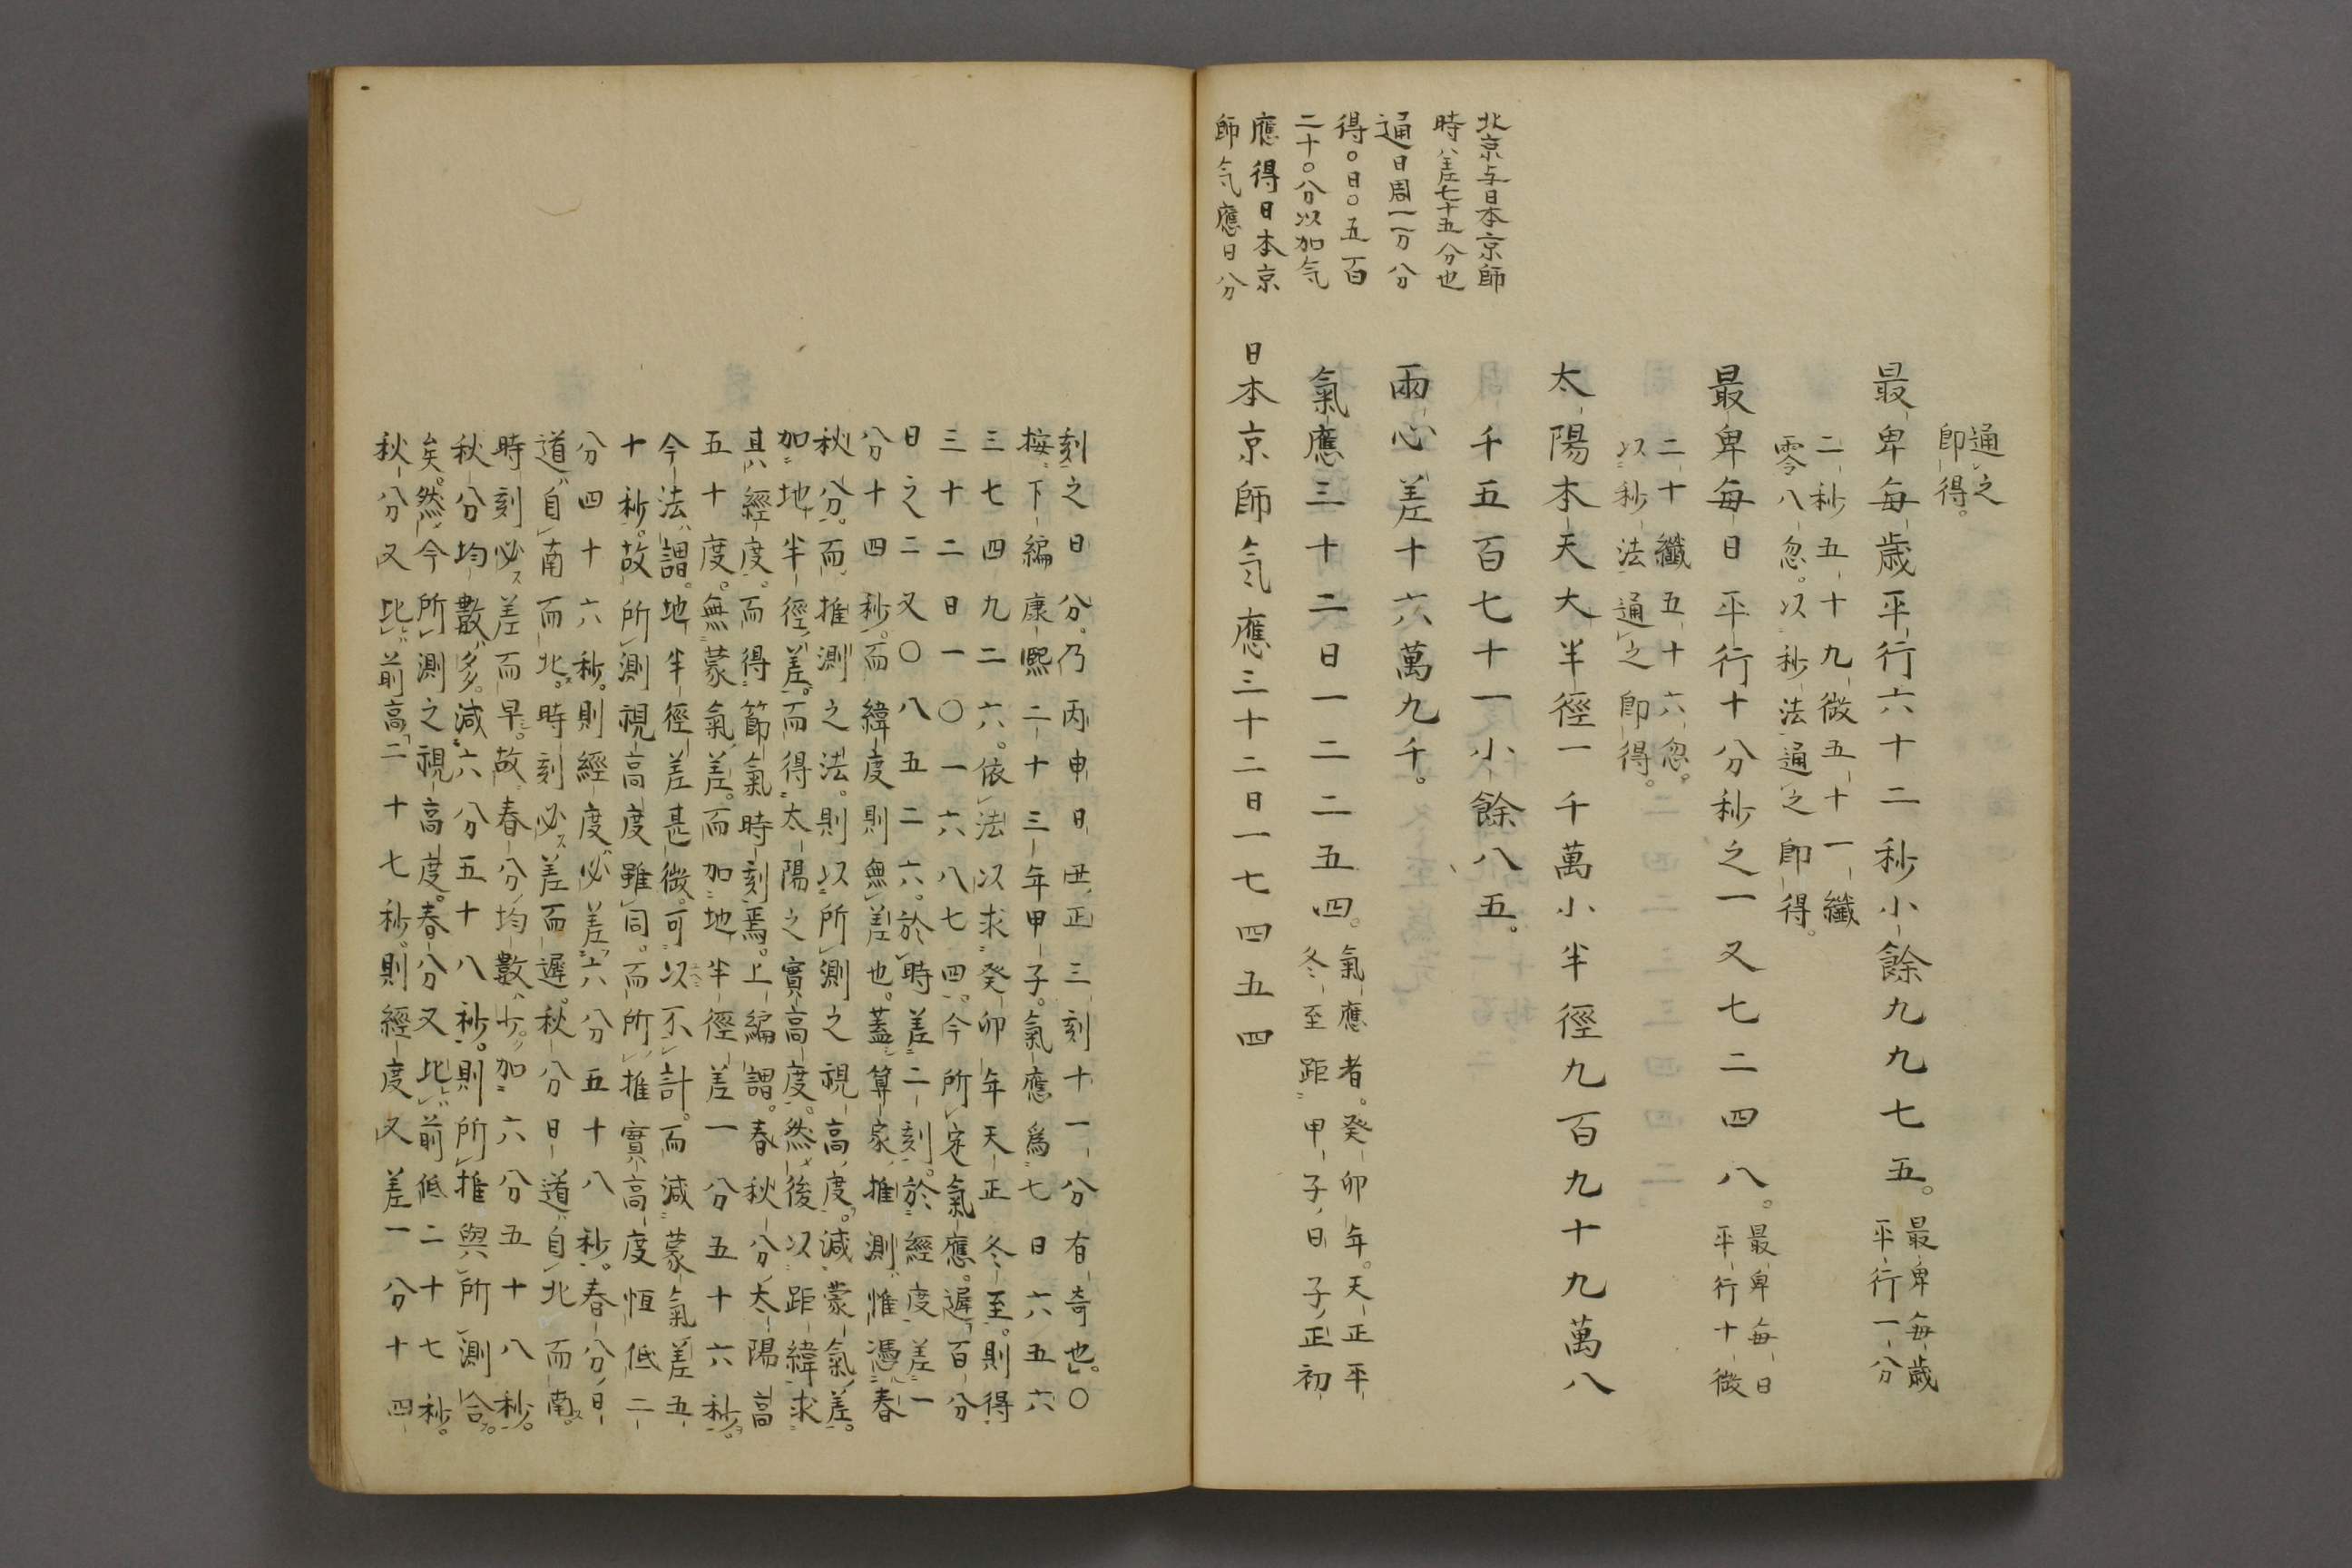 北京与日本京師
時ハ差七十五分也
通日周一万分
得〇日〇五百
二十〇分以加気
應得日本京
師気應日分
通之
即得。
最卑每歳平行六十二秒小餘九九七五。
最卑每歳
平行一分
二秒五十九微五十一纖
零八忽。以秒法通之即得。
最卑每日平行十分秒之一又七二四八。
最卑每日
平行十微
二十纖五十六忽。
以秒法通之即得。
太陽本天大半徑一千萬小半徑九百九十九萬八
千五百七十一小餘八五。
兩心差十六萬九千。
氣應三十二日一二二五四。
氣應者。癸卯年。天正平
冬至距甲子日子正初
日本京師気應三十二日一七四五四
刻之日分。乃丙申日丑正三刻十一分有奇也。〇
按下編康熙二十三年甲子。氣應爲七日六五六
三七四九二六。依法以求癸卯年天正冬至。則得
三十二日一〇一六八七四。今所定氣應。遲百分
日之二又〇八五二六。於時差二刻。於經度差一
分十四秒。而緯度則無差也。蓋算家推測惟憑春
秋分。而推測之法。則以所測之視高度。減蒙氣差。
加地半徑差。而得太陽之實高度。然後以距緯求
其經度。而得節氣時刻焉。上編謂。春秋分太陽高
五十度。無蒙氣差。而加地半徑差一分五十六秒。
今法謂。地半徑差甚微。可以不計。而減蒙氣差五
十秒。故所測視高度雖同。而所推實高度恒低二
分四十六秒。則經度必差六分五十八秒。春分日
道自南而北。時刻必差而遲。秋分日道自北而南。
時刻必差而早。故春分均數少。加六分五十八秒。
秋分均數多。減六分五十八秒。則所推與所測合
矣。然今所測之視高度。春分又比前低二十七秒。
秋分又比前高二十七秒。則經度又差一分十四